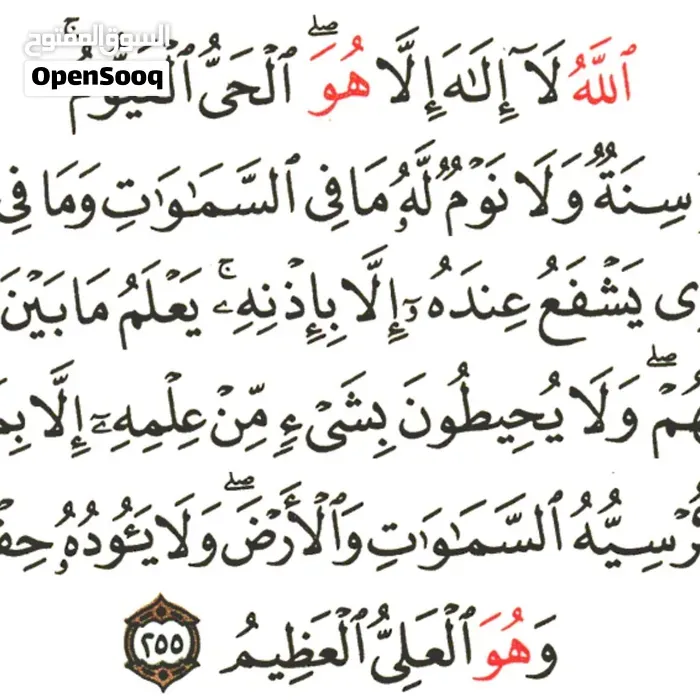 السوق المفتوح
OpenSooq
ٱللَّهُ لَآ إِلَٰهَ إِلَّا هُوَ ۖ ٱلْحَىُّ ٱلْقَيُّومُ ۚ
سِنَةٌ وَلَا نَوْمٌ لَّهُۥ مَا فِى ٱلسَّمَٰوَٰتِ وَمَا فِى
يَشْفَعُ عِندَهُۥٓ إِلَّا بِإِذْنِهِۦ ۚ يَعْلَمُ مَا بَيْنَ
هُمْ ۖ وَلَا يُحِيطُونَ بِشَىْءٍ مِّنْ عِلْمِهِۦٓ إِلَّا بِمَ
رْسِيُّهُ ٱلسَّمَٰوَٰتِ وَٱلْأَرْضَ ۖ وَلَا يَـُٔودُهُۥ حِفْ
وَهُوَ ٱلْعَلِىُّ ٱلْعَظِيمُ ٢٥٥